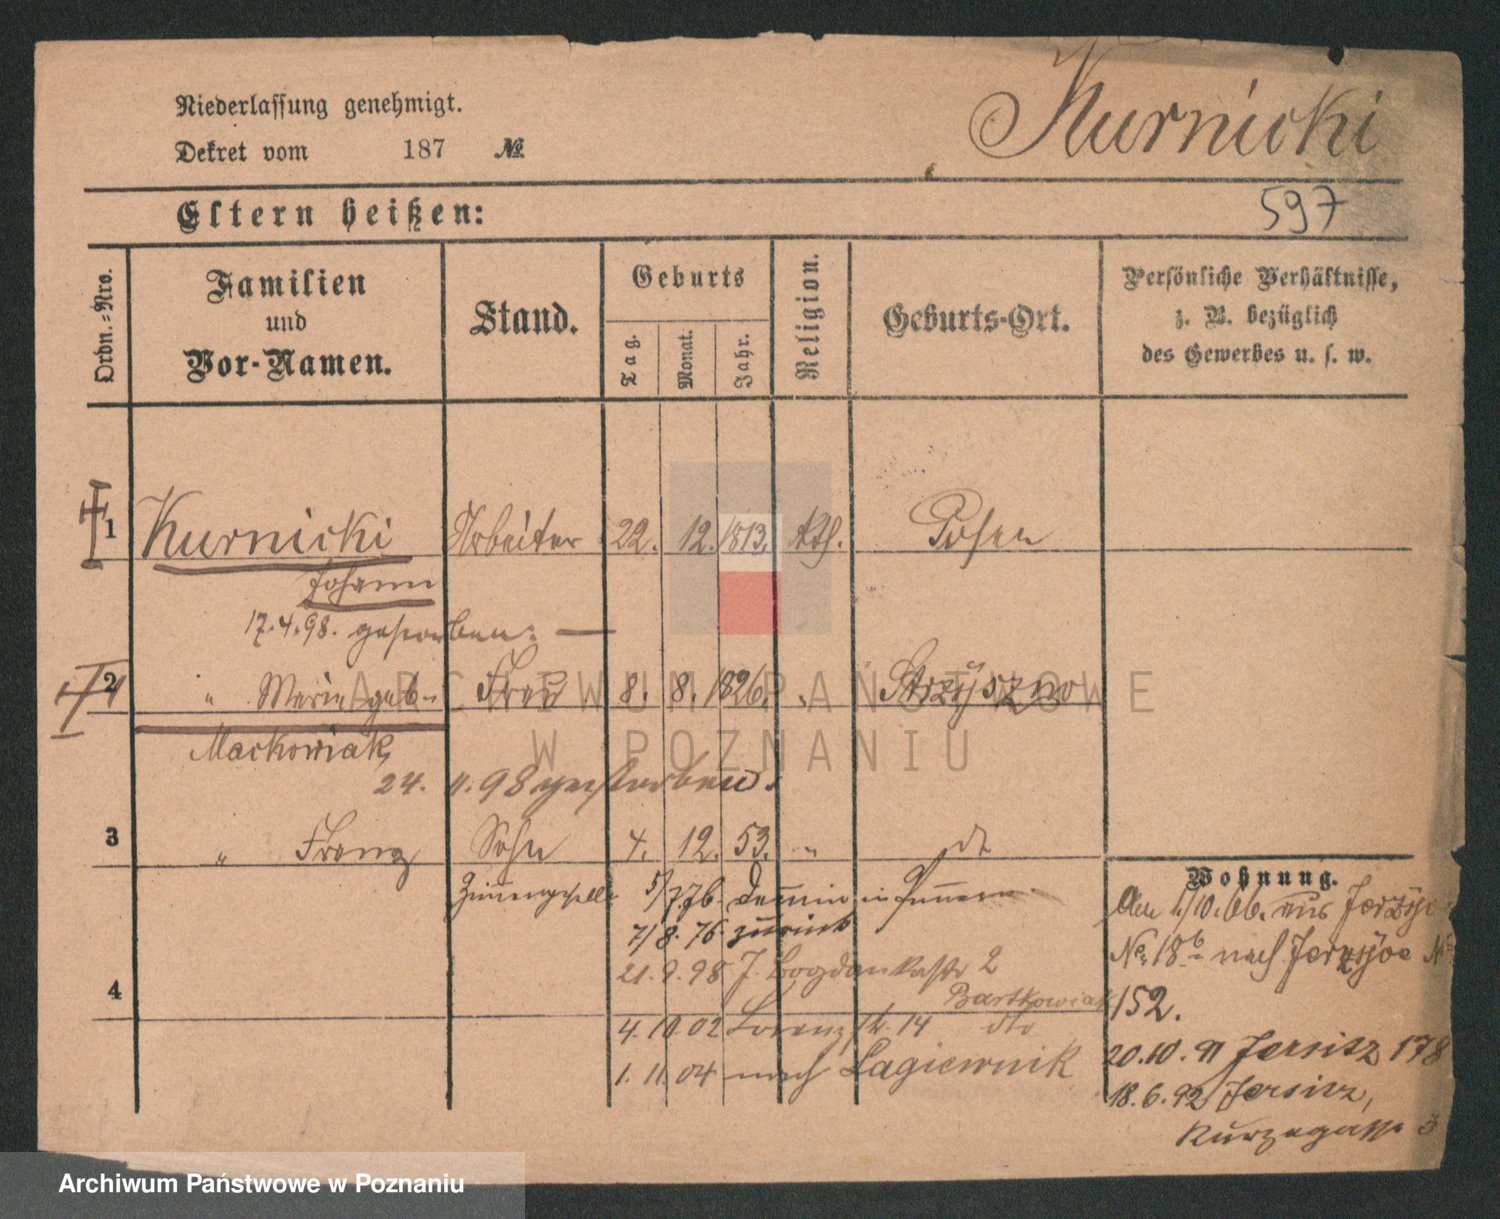 Niederlassung genehmigt.
Dekret vom 187 №
Kurnicki
Eltern heißen:
597
Ordn.-Nro.
Familien
und
Vor-Namen.
Stand.
Geburts
Tag.
Monat.
Jahr.
Religion.
Geburts-Ort.
Persönliche Verhältnisse,
z. B. bezüglich
des Gewerbes u. s. w.
1 Kurnicki Arbeiter 22. 12. 1813. kth. Posen
Johann
17.4.98. gestorben. —
2 " Marie geb. Frau 8. 8. 1826. " Strzyszno
Mackowiak
24. 11. 98 gestorben.
3 " Franz Sohn 4. 12. 53. " dt
Zimmergeselle 5/7.76. Demmin in Pommern
7/8. 76 zurück
21. 9. 98 J. Bogdankastr 2
Bartkowiak
4
4. 10 02 Lorenzstr. 14 dto
1. 11 04 nach Lagiewnik
Wohnung.
Am 1/10.66. aus Jerzyce
No. 18b nach Jerzyce No
152.
20.10.91 Jersitz 178
18.6.92 Jersitz,
Kurzegasse 3
ARCHIWUM PAŃSTWOWE
W POZNANIU
Archiwum Państwowe w Poznaniu